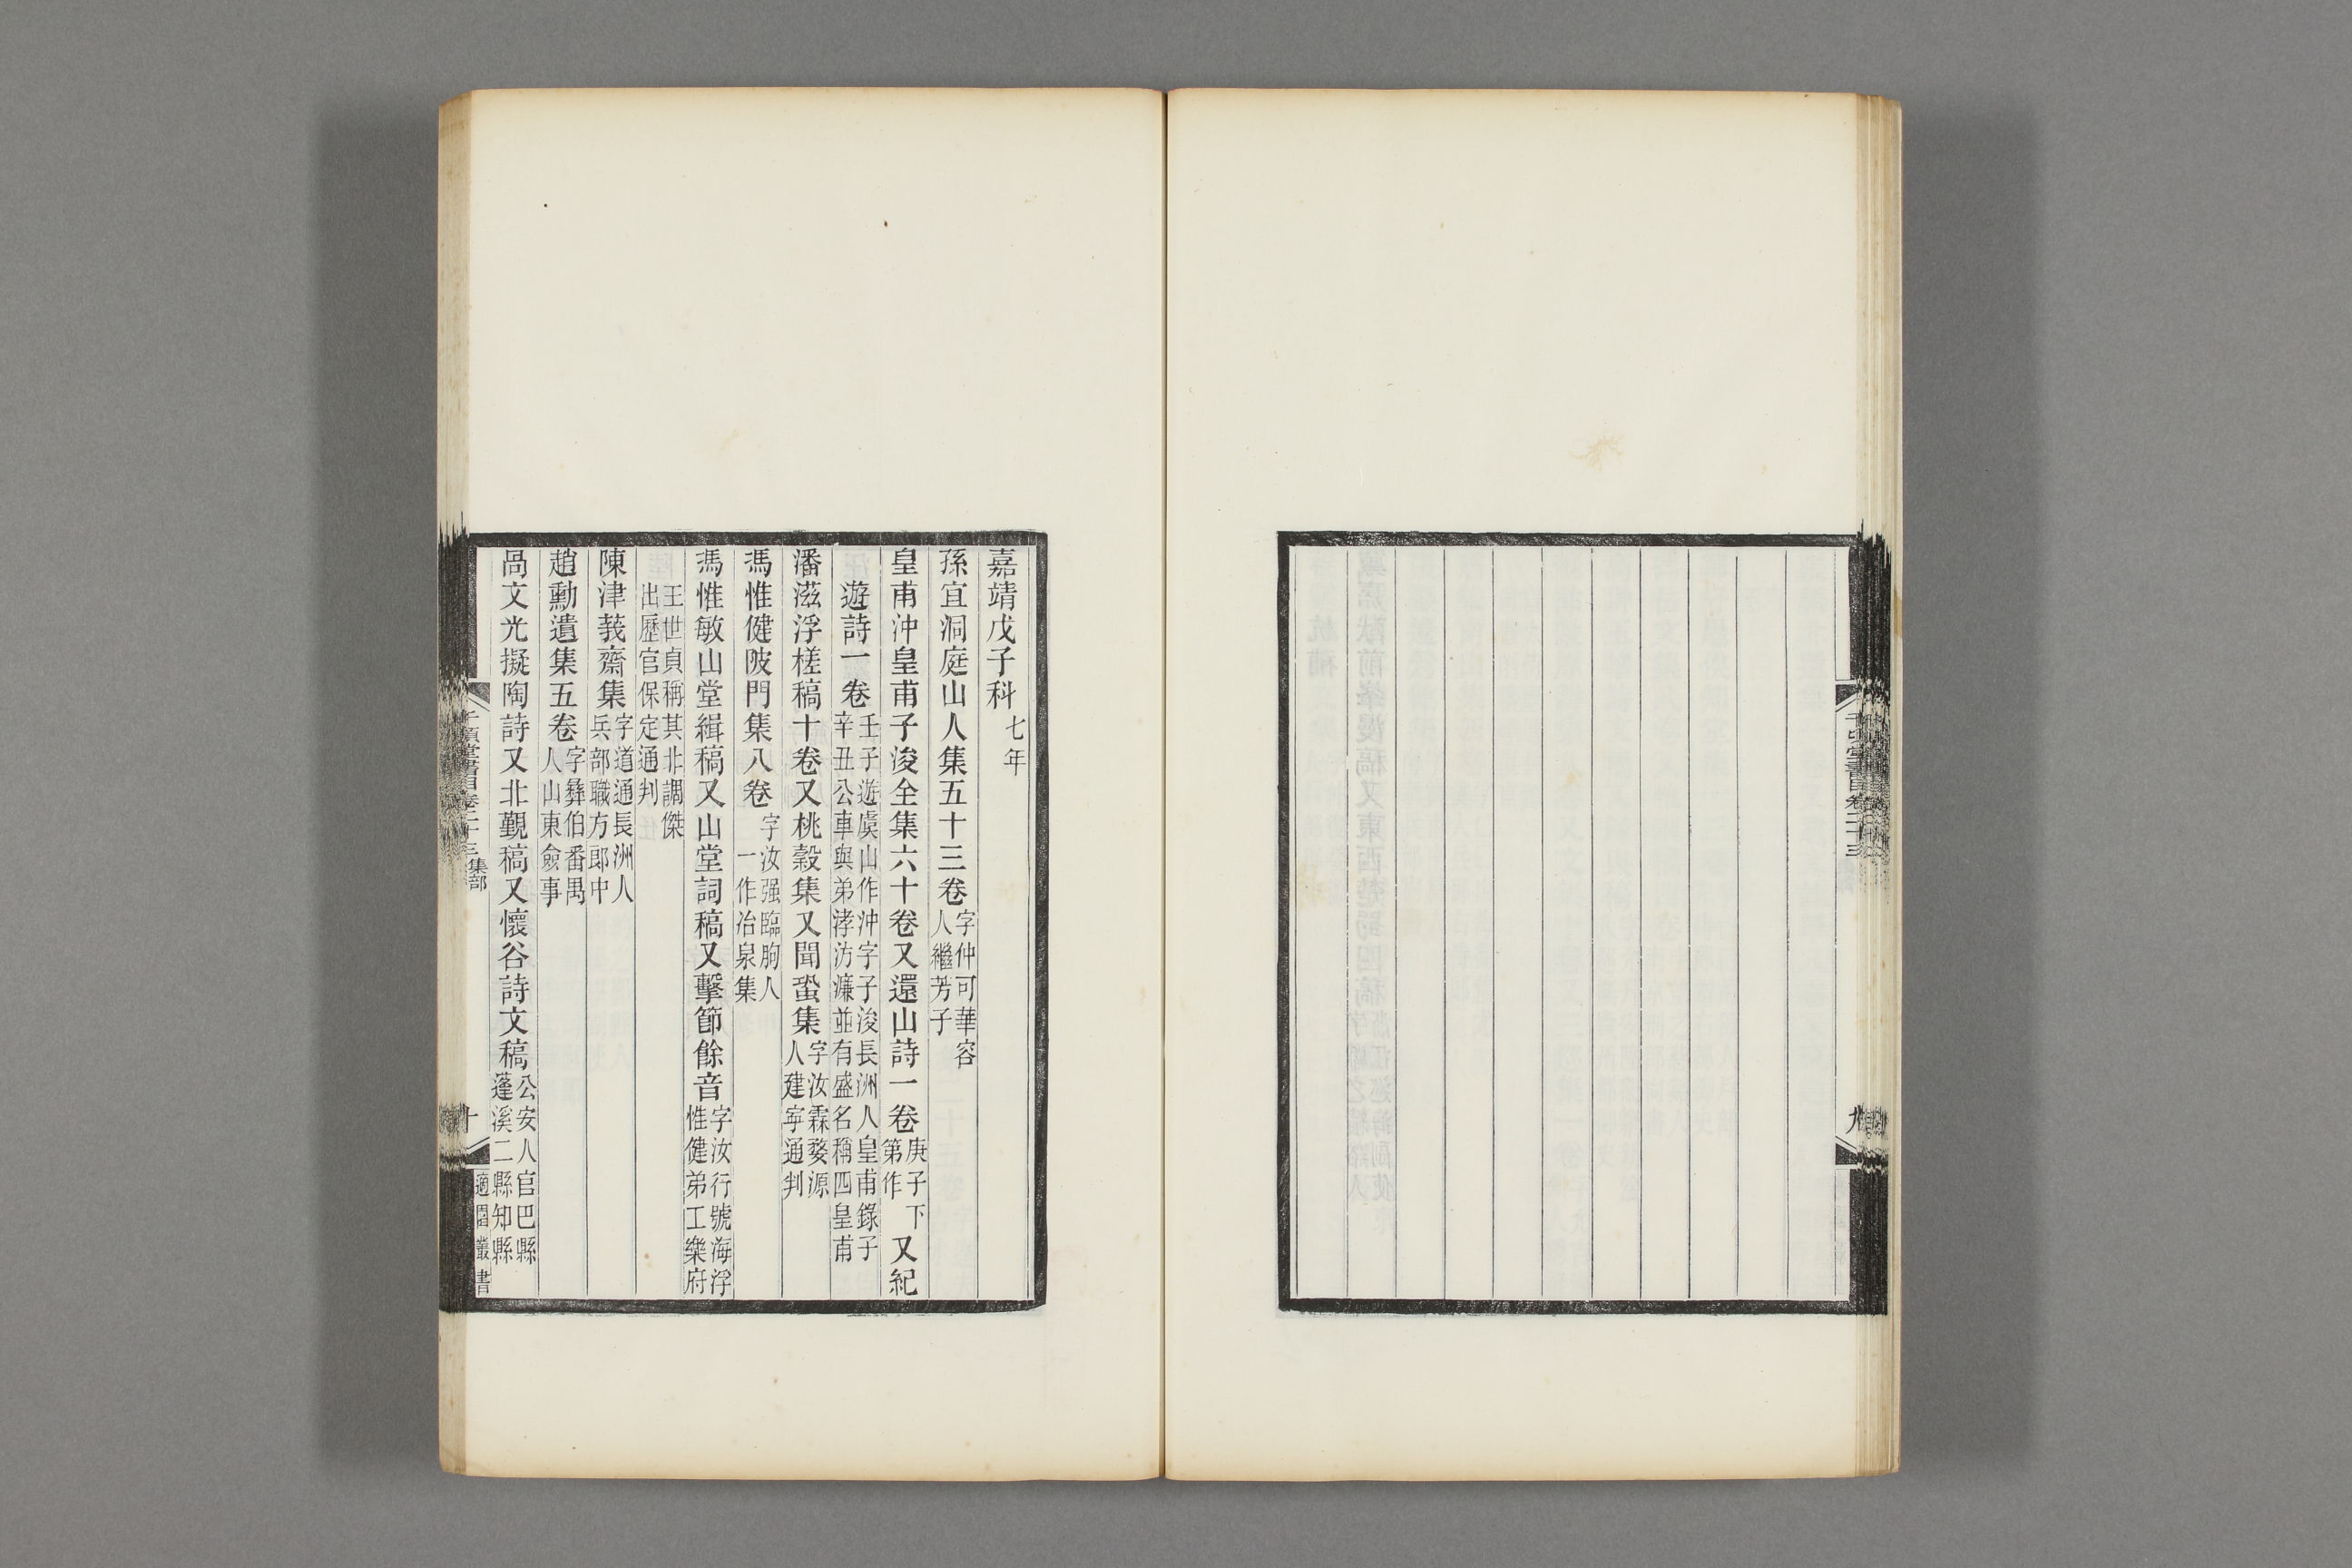 千頃堂書目卷二十三
九
嘉靖戊子科七年
孫宜洞庭山人集五十三卷字仲可華容人繼芳子
皇甫沖皇甫子浚全集六十卷又還山詩一卷庚子下第作又紀
遊詩一卷壬子遊虞山作沖字子浚長洲人皇甫錄子辛丑公車與弟涍汸濂並有盛名稱四皇甫
潘滋浮槎稿十卷又桃穀集又聞蛩集字汝霖婺源人建寧通判
馮惟健陂門集八卷字汝强臨朐人一作冶泉集
馮惟敏山堂緝稿又山堂詞稿又擊節餘音字汝行號海浮惟健弟工樂府
王世貞稱其北調傑出歷官保定通判
陳津莪齋集字道通長洲人兵部職方郎中
趙勳遺集五卷字彝伯番禺人山東僉事
咼文光擬陶詩又北觀稿又懷谷詩文稿公安人官巴縣蓬溪二縣知縣
千頃堂書目卷二十三集部
十
適園叢書